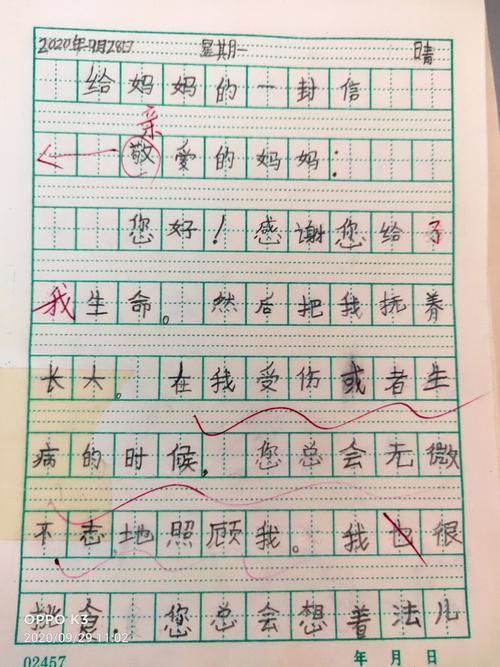 2020年9月28日 星期一 晴
给妈妈的一封信
亲
敬爱的妈妈:
您好!感谢您给了
我生命。然后把我抚养
长大。在我受伤或者生
病的时候,您总会无微
不志地照顾我。我也很
挑食,您总会想着法儿
OPPO K3
2020/09/29 11:02
02457 年 月 日